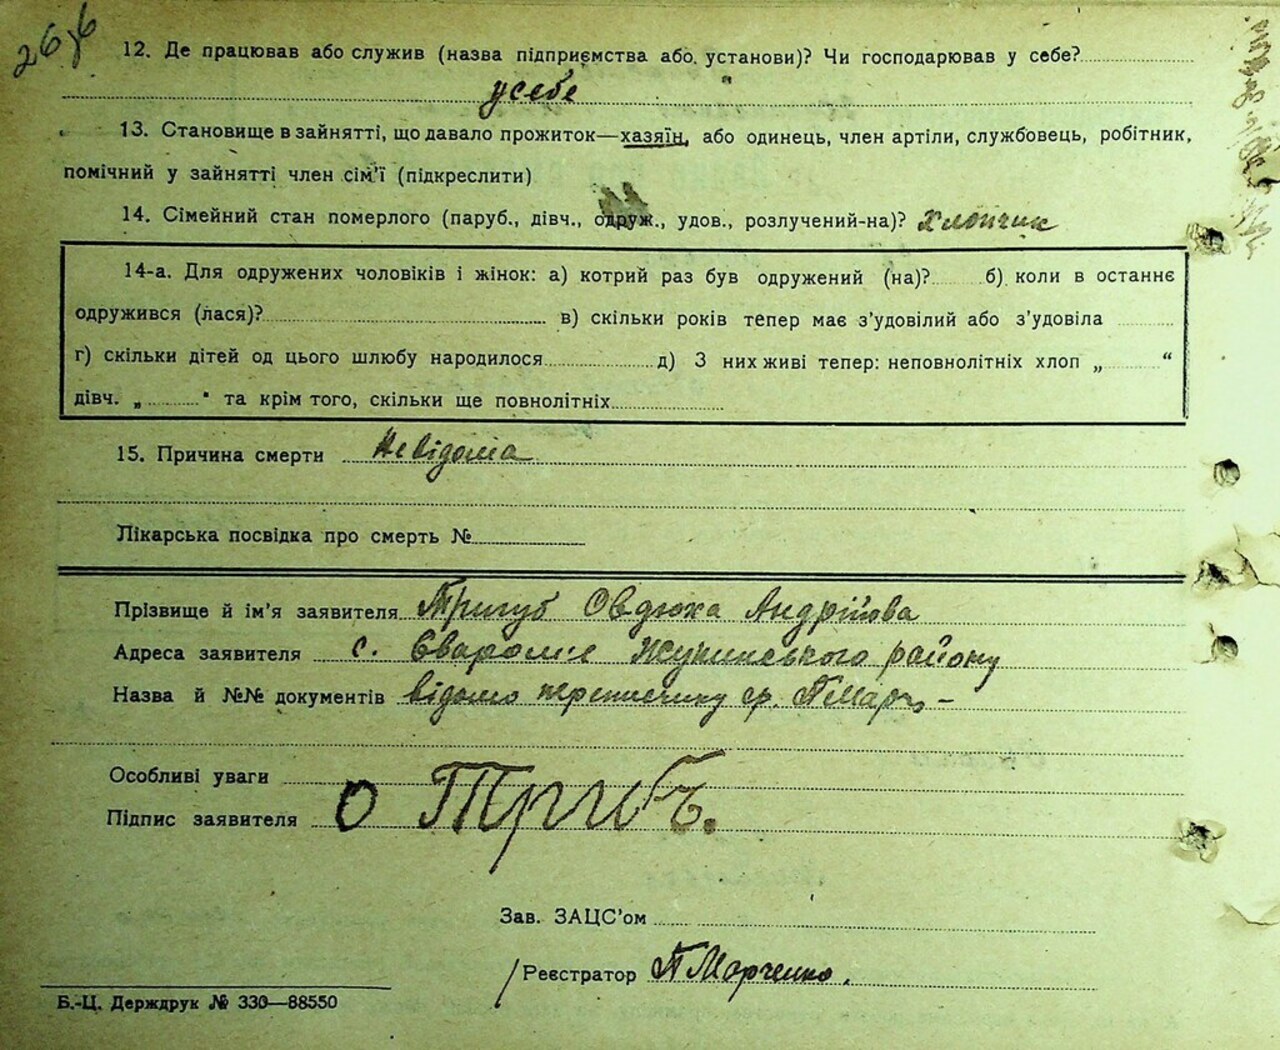 26
12. Де працював або служив (назва підприємства або. установи)? Чи господарював у себе?
усебе
13. Становище в зайнятті, що давало прожиток—хазяїн, або одинець, член артіли, службовець, робітник,
помічний у зайнятті член сім'ї (підкреслити)
14. Сімейний стан померлого (паруб., дівч., одруж., удов., розлучений-на)? Хлопчик
14-а. Для одружених чоловіків і жінок: а) котрий раз був одружений (на)? б) коли в останнє
одружився (лася)? в) скільки років тепер має з'удовілий або з'удовіла
г) скільки дітей од цього шлюбу народилося д) З них живі тепер: неповнолітніх хлоп „ “
дівч. „ " та крім того, скільки ще повнолітніх
15. Причина смерти Невідома
Лікарська посвідка про смерть №
Прізвище й ім'я заявителя Тригуб Овдюха Андрійова
Адреса заявителя с. Єваромє Жукинського району
Назва й №№ документів відомо гр. ПМарч, –
Особливі уваги
Підпис заявителя О Тригубъ.
Зав. ЗАЦС'ом
/Реєстратор П Марченко.
Б.-Ц. Держдрук № 330—88550